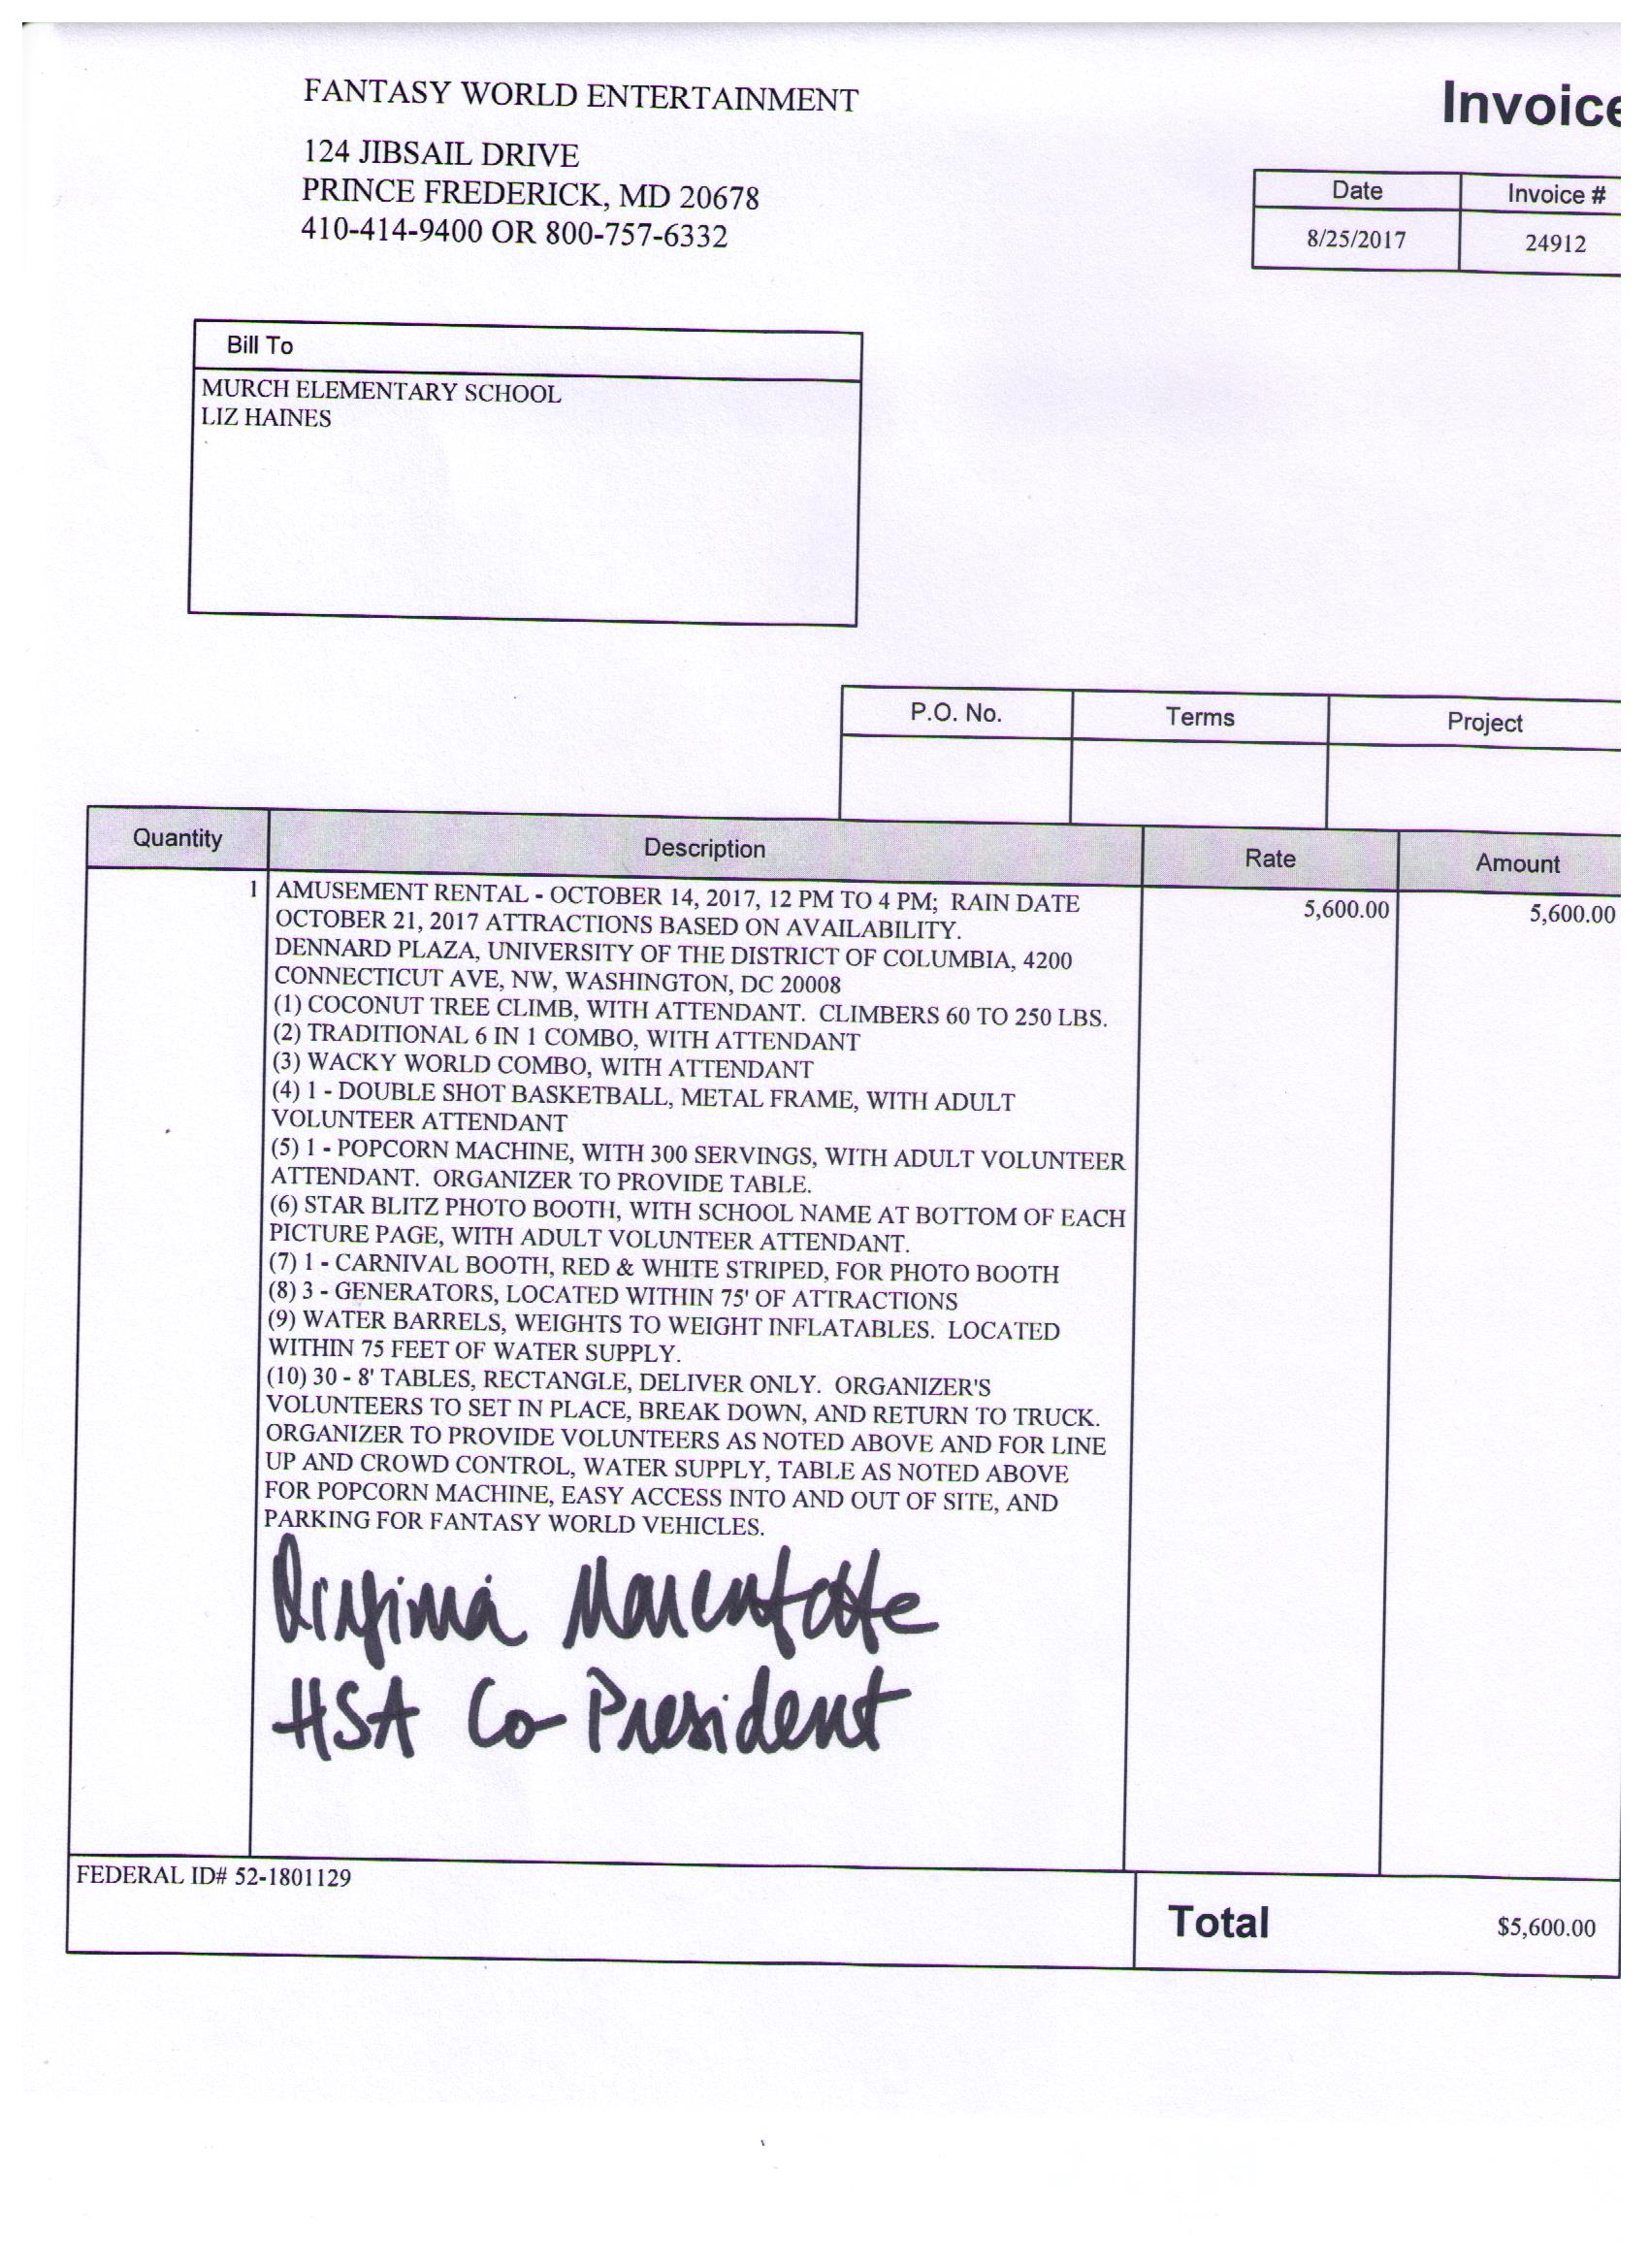 FANTASY WORLD ENTERTAINMENT
Invoice
124 JIBSAIL DRIVE
PRINCE FREDERICK, MD 20678
410-414-9400 OR 800-757-6332
Date Invoice #
8/25/2017 24912
Bill To
MURCH ELEMENTARY SCHOOL
LIZ HAINES
P.O. No. Terms Project
Quantity Description Rate Amount
1 AMUSEMENT RENTAL - OCTOBER 14, 2017, 12 PM TO 4 PM; RAIN DATE 5,600.00 5,600.00
OCTOBER 21, 2017 ATTRACTIONS BASED ON AVAILABILITY.
DENNARD PLAZA, UNIVERSITY OF THE DISTRICT OF COLUMBIA, 4200
CONNECTICUT AVE, NW, WASHINGTON, DC 20008
(1) COCONUT TREE CLIMB, WITH ATTENDANT. CLIMBERS 60 TO 250 LBS.
(2) TRADITIONAL 6 IN 1 COMBO, WITH ATTENDANT
(3) WACKY WORLD COMBO, WITH ATTENDANT
(4) 1 - DOUBLE SHOT BASKETBALL, METAL FRAME, WITH ADULT
VOLUNTEER ATTENDANT
(5) 1 - POPCORN MACHINE, WITH 300 SERVINGS, WITH ADULT VOLUNTEER
ATTENDANT. ORGANIZER TO PROVIDE TABLE.
(6) STAR BLITZ PHOTO BOOTH, WITH SCHOOL NAME AT BOTTOM OF EACH
PICTURE PAGE, WITH ADULT VOLUNTEER ATTENDANT.
(7) 1 - CARNIVAL BOOTH, RED & WHITE STRIPED, FOR PHOTO BOOTH
(8) 3 - GENERATORS, LOCATED WITHIN 75' OF ATTRACTIONS
(9) WATER BARRELS, WEIGHTS TO WEIGHT INFLATABLES. LOCATED
WITHIN 75 FEET OF WATER SUPPLY.
(10) 30 - 8' TABLES, RECTANGLE, DELIVER ONLY. ORGANIZER'S
VOLUNTEERS TO SET IN PLACE, BREAK DOWN, AND RETURN TO TRUCK.
ORGANIZER TO PROVIDE VOLUNTEERS AS NOTED ABOVE AND FOR LINE
UP AND CROWD CONTROL, WATER SUPPLY, TABLE AS NOTED ABOVE
FOR POPCORN MACHINE, EASY ACCESS INTO AND OUT OF SITE, AND
PARKING FOR FANTASY WORLD VEHICLES.
HSA Co-President
FEDERAL ID# 52-1801129
Total $5,600.00